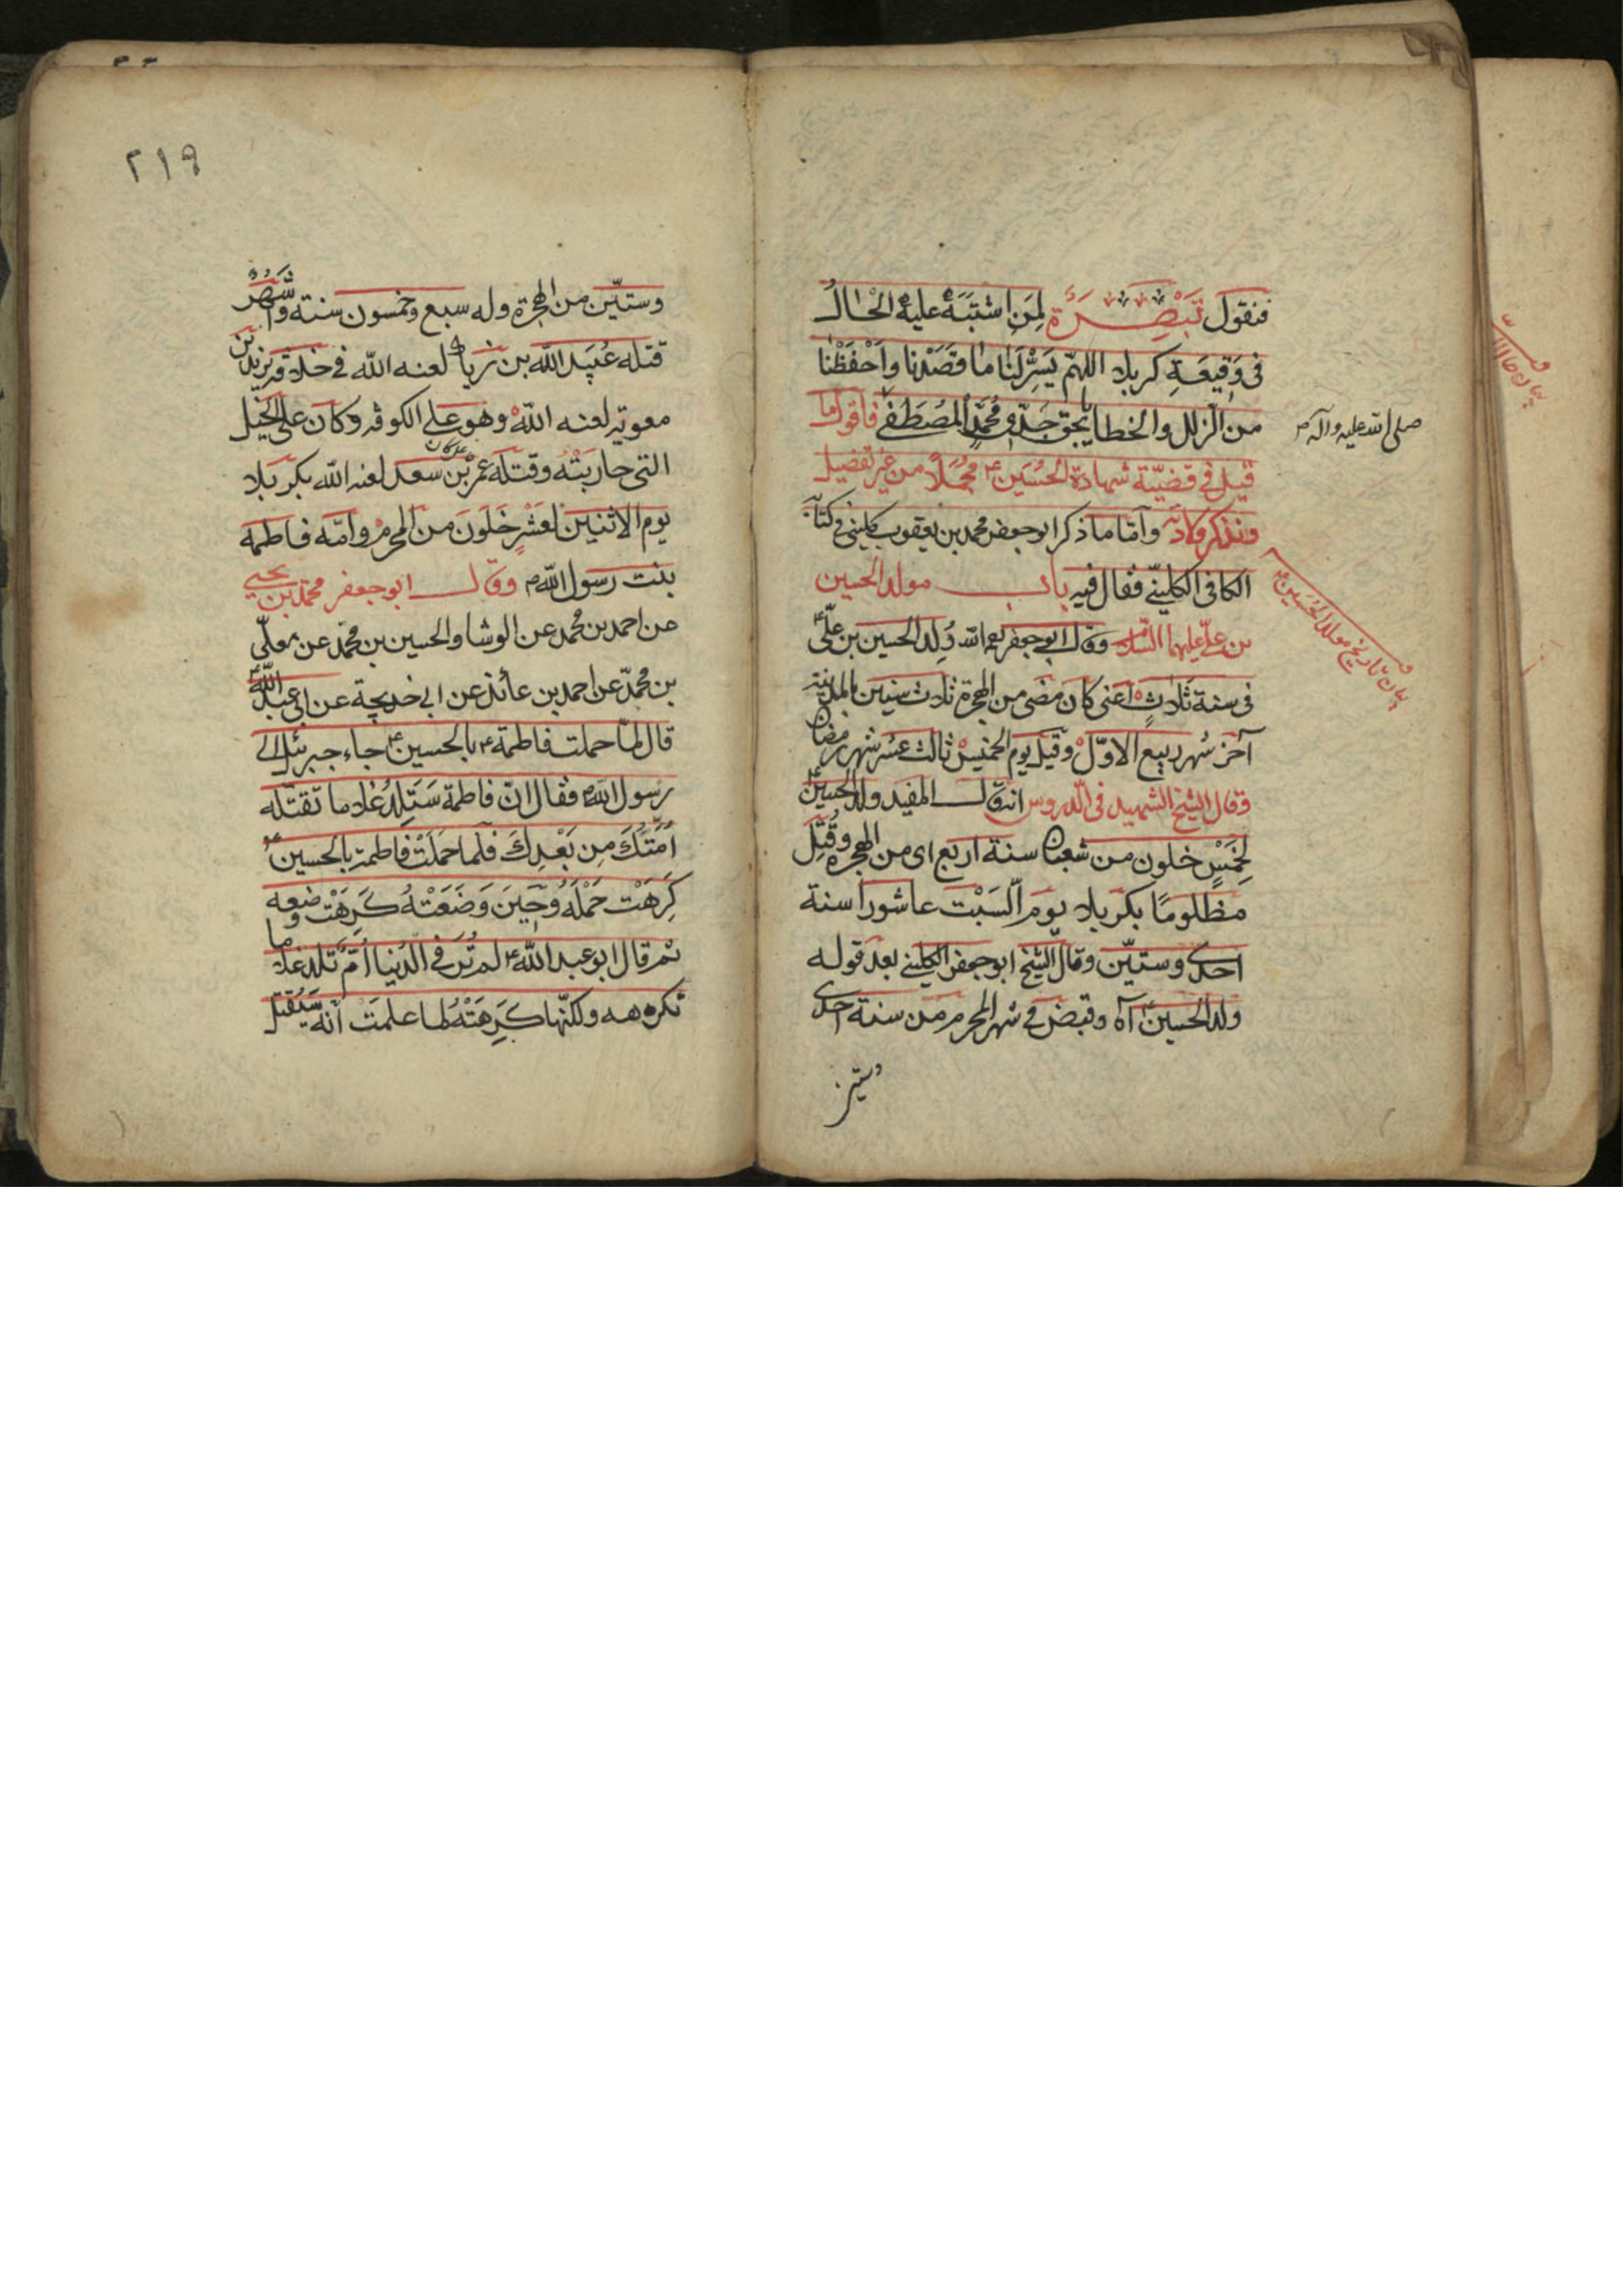 فنقول تَبْصِرَة لِمَن اشتَبَهَ عليه الحٰالُ
فى وَقيعَةِ كربلا اللهمّ يَسِّر لَنٰا مٰا قصَدْنا واَحْفَظْنٰا
من الزلل والخطا بحق جدّى محمّد المُصْطفىٰ فاقول ما
صلى الله عليه وآله
قيل فى قضيّة شهادة الحُسَين ع مُجْملاً من غير تفصيل
ونذكر وآمّا ما ذكر ابو جعفر محمد بن يعقوب كلينى فى كتابه
الكافى الكلينّے فقال فيه باب مولد الحسين
بيان تاريخ مولد الحُسَين ع
بن علىّ عليهما السّلام وقال ابى جعفر ره الله وُلِد الحسين بن علىّ ع
فى سنة ثَلاثٍ اعنى كان مضى من الهجرة ثلاث سنين بالمدينة
آخر شهر ربيع الاوّل وقيل يوم الخميس ثالث عشر شهر رمضان
وقال الشيخ الشهيد فى الدروس انه قال المفيد ولد الحسين ع
لِخَمْسٍ خلون من شعبان سنة اربع اى من الهجرة وقُتِل
مظلومًا بكربلا يوم السَبْت عاشورا سنة
احدى وستيّن وقال الشيخ ابو جعفر الكلينے بعد قوله
ولد الحسين آه وقبض فے شهر المحرم من سنة احدى
وستين
٢١٩
وستيّن من الهجرة وله سبع وخمسون سنة واَشْهُرٌ
قتله عُبَيد الله بن زياد لعنه الله فى خلافة يزيد بن
معوية لعنه اللهْ وهو على الكوفة وكان على الخيل
التى حاربَتْهُ وقتله عمر بْن سعد لعنه الله بكربلا
يوم الاثنين لعَشْرٍ خَلَونَ من المحرم وامّه فاطمه
بنت رسول الله ص وقال ابو جعفر محمد بن يحيى
عن احمد بن محمد عن الوشا والحسين بن محمّد عن معلّى
بن محمّد عن احمد بن عائذ عن ابى خديجة عن ابى عبد اللّه ع
قال لمّا حملت فاطمة ع بالحسين ع جاء جبرئيل الى
رسول الله ص فقال انّ فاطمة سَتَلِدُ غلاما تقتله
اُمَّتُكَ مِن بَعْدِكَ فلمّا حَمَلَتْ فاطمة بالحسين ع
كَرِهَتْ حَمْلَهُ وحينَ وَضَعَتْهُ كَرِهَتْ وضعه
ثم قال ابو عبد الله ع لم تُرَ فى الدُنيا اُمٌّ تلد غلاما
تكرهه ولكنّها كَرِهَتْهُ لما علمَت اَنّه سَيُقتل